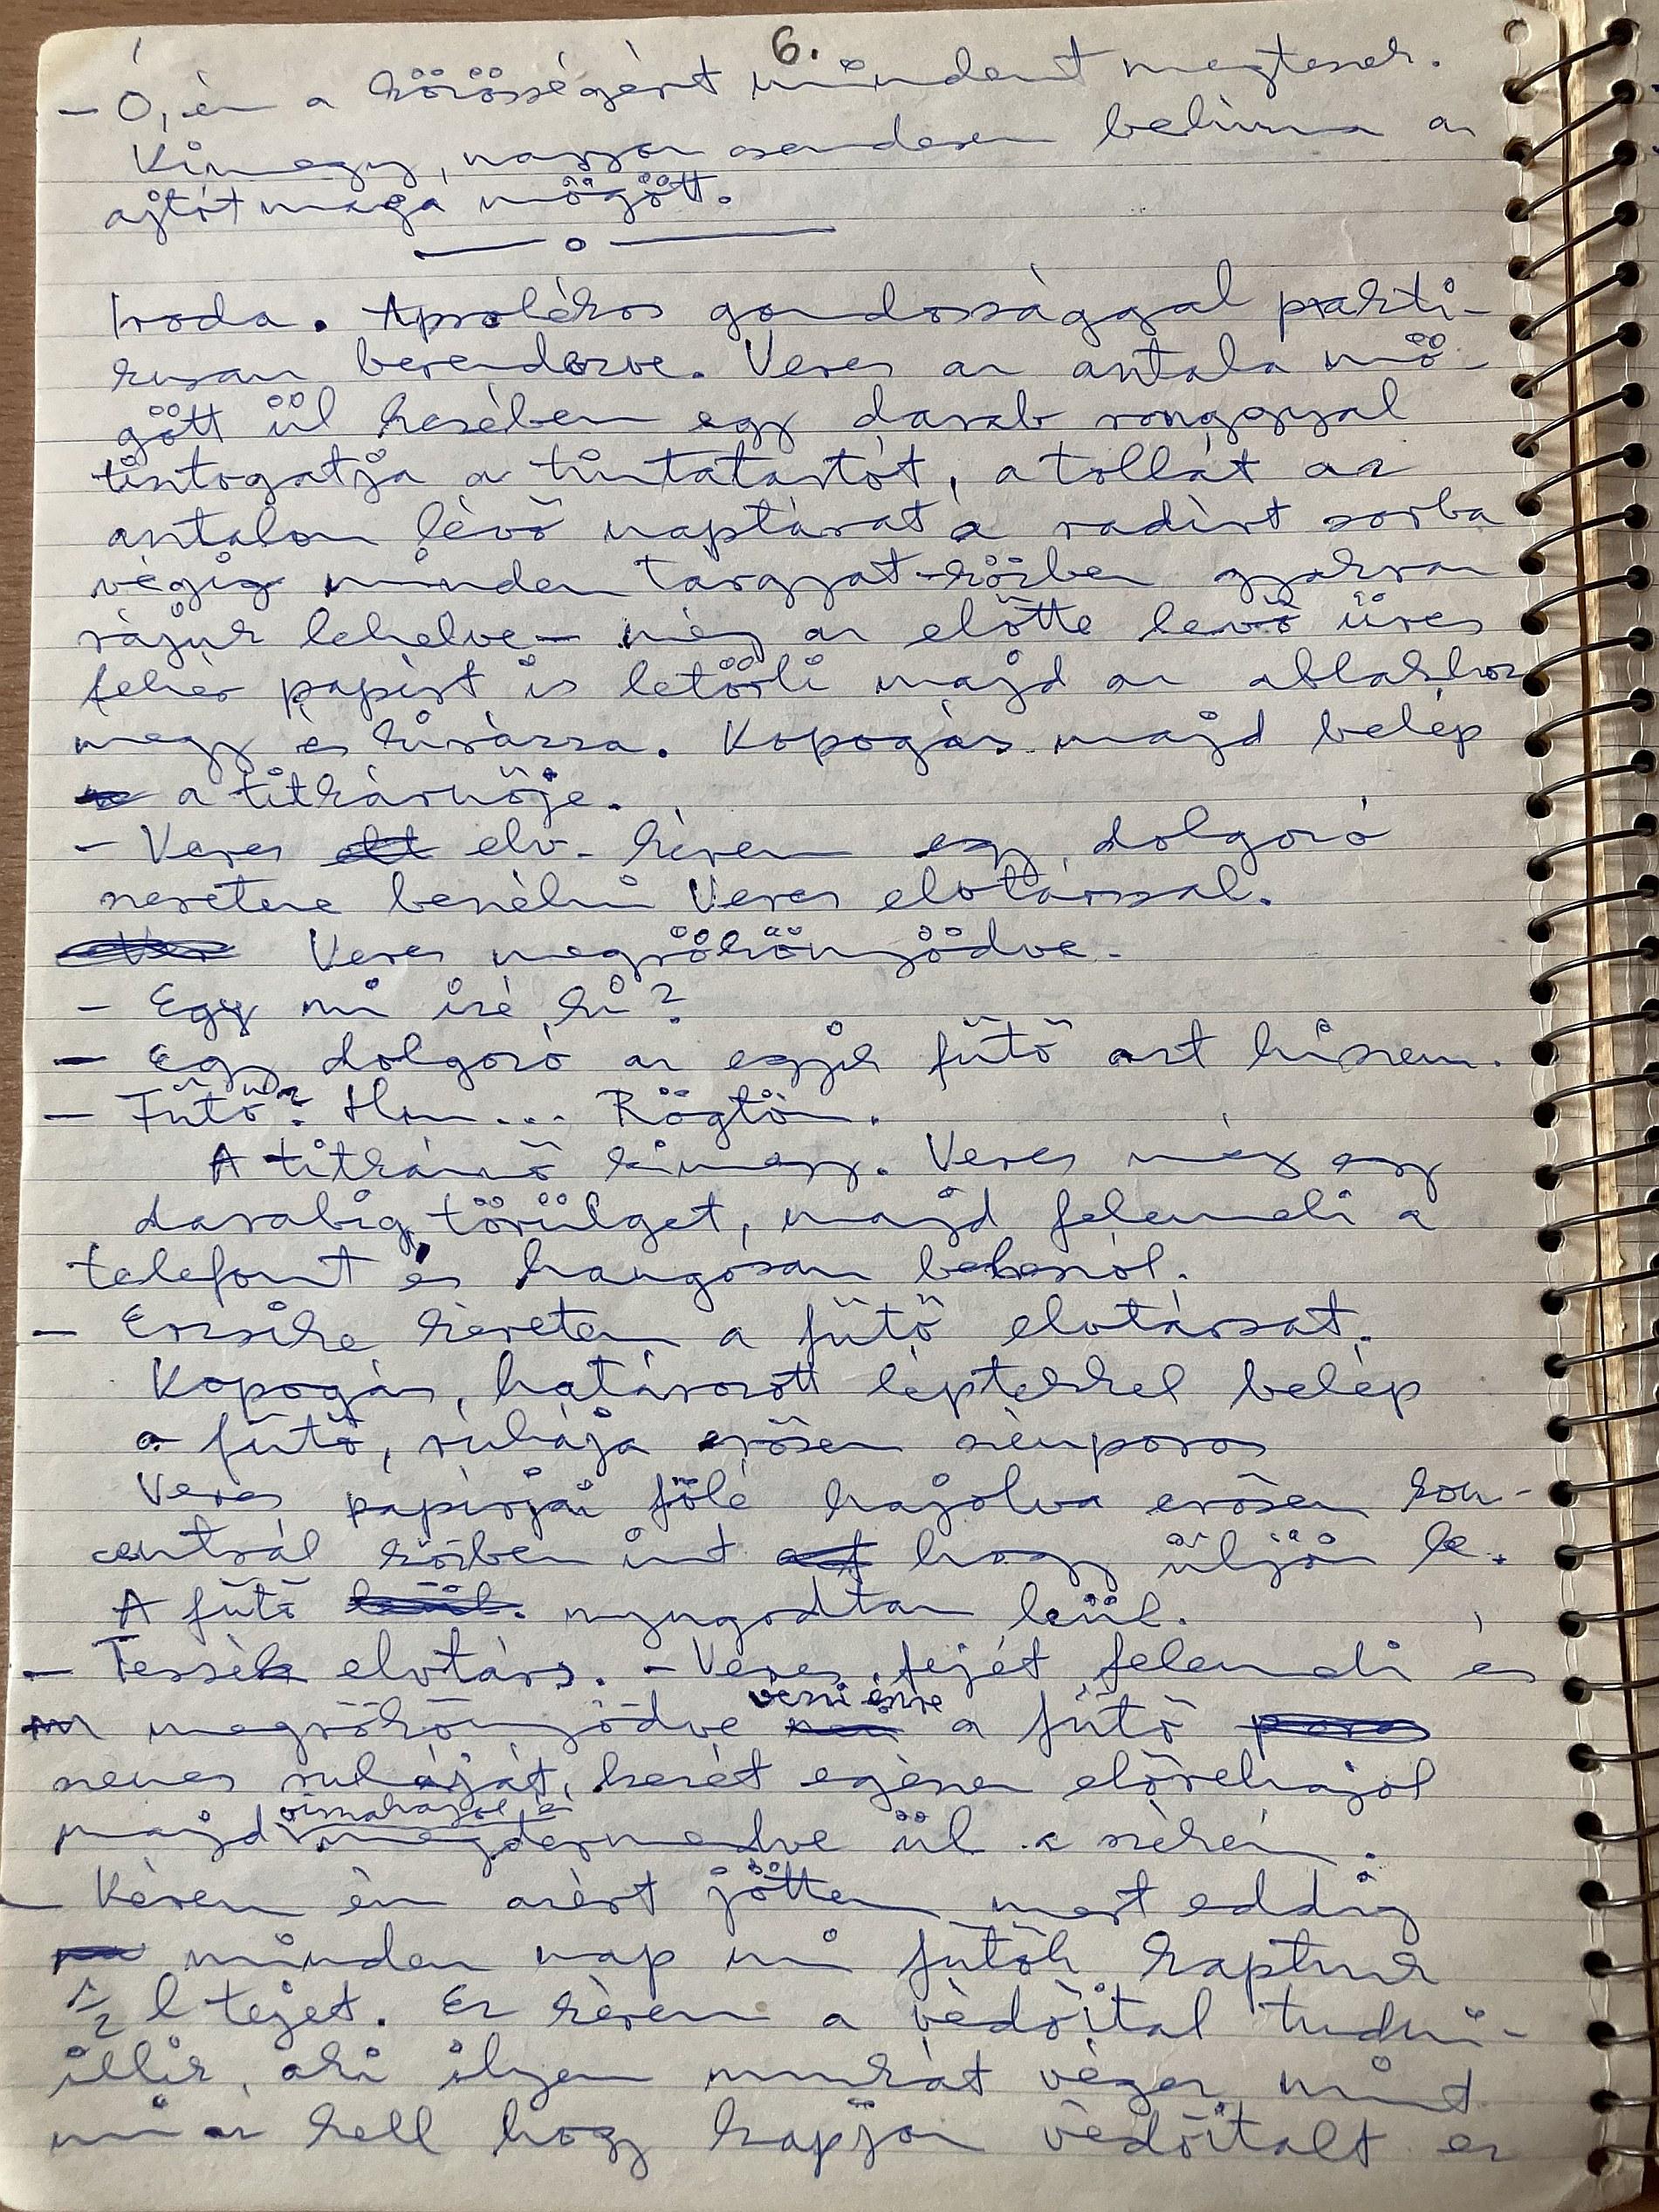 6.
- Ó, én a közösségért mindent megteszek.
Kimegy, nagyon csendesen behúzza az
ajtót maga mögött.
— o —
Iroda. Aprolékos gondossággal prakti-
kusan berendezve. Veres az asztala mö-
gött ül kezében egy darab ronggyal
tisztogatja a tintatartót, a tollát az
asztalon lévő naptárat a radírt sorba
végig minden tárgyat - közben gyakran
rájuk lehelve - még az előtte levő üres
fehér papírt is letörli majd az ablakhoz
megy és kirázza. Kopogás majd belép
a titkárnője.
- Veres elv. kérem egy dolgozó
szeretne beszélni Veres elvtárssal.
Veres megrökönyödve.
- Egy mi izé ki?
- Egy dolgozó az egyik fűtő azt hiszem.
- Fűtő? Hm... Rögtön.
A titkárnő kimegy. Veres még egy
darabig törülget, majd felemeli a
telefont és hangosan beleszól.
- Erzsike kéretem a fűtő elvtársat.
Kopogás, határozott léptekkel belép
a fűtő, ruhája erősen szénporos
Veres papírjai fölé hajolva erősen kon-
centrál közben int hogy üljön le.
A fűtő nyugodtan leül.
- Tessék elvtárs. - Veres fejét felemeli és
megrökönyödve veszi észre a fűtő
szenes ruháját, kezét egészen előrehajol
majd visszahajol és megdermedve ül a székén.
- Kérem én azért jöttem mert eddig
minden nap mi fűtők kaptunk
1/2 l tejet. Ez kérem a védőital tudni-
illik, aki ilyen munkát végez mint
mi az kell hogy kapjon védőitalt ez